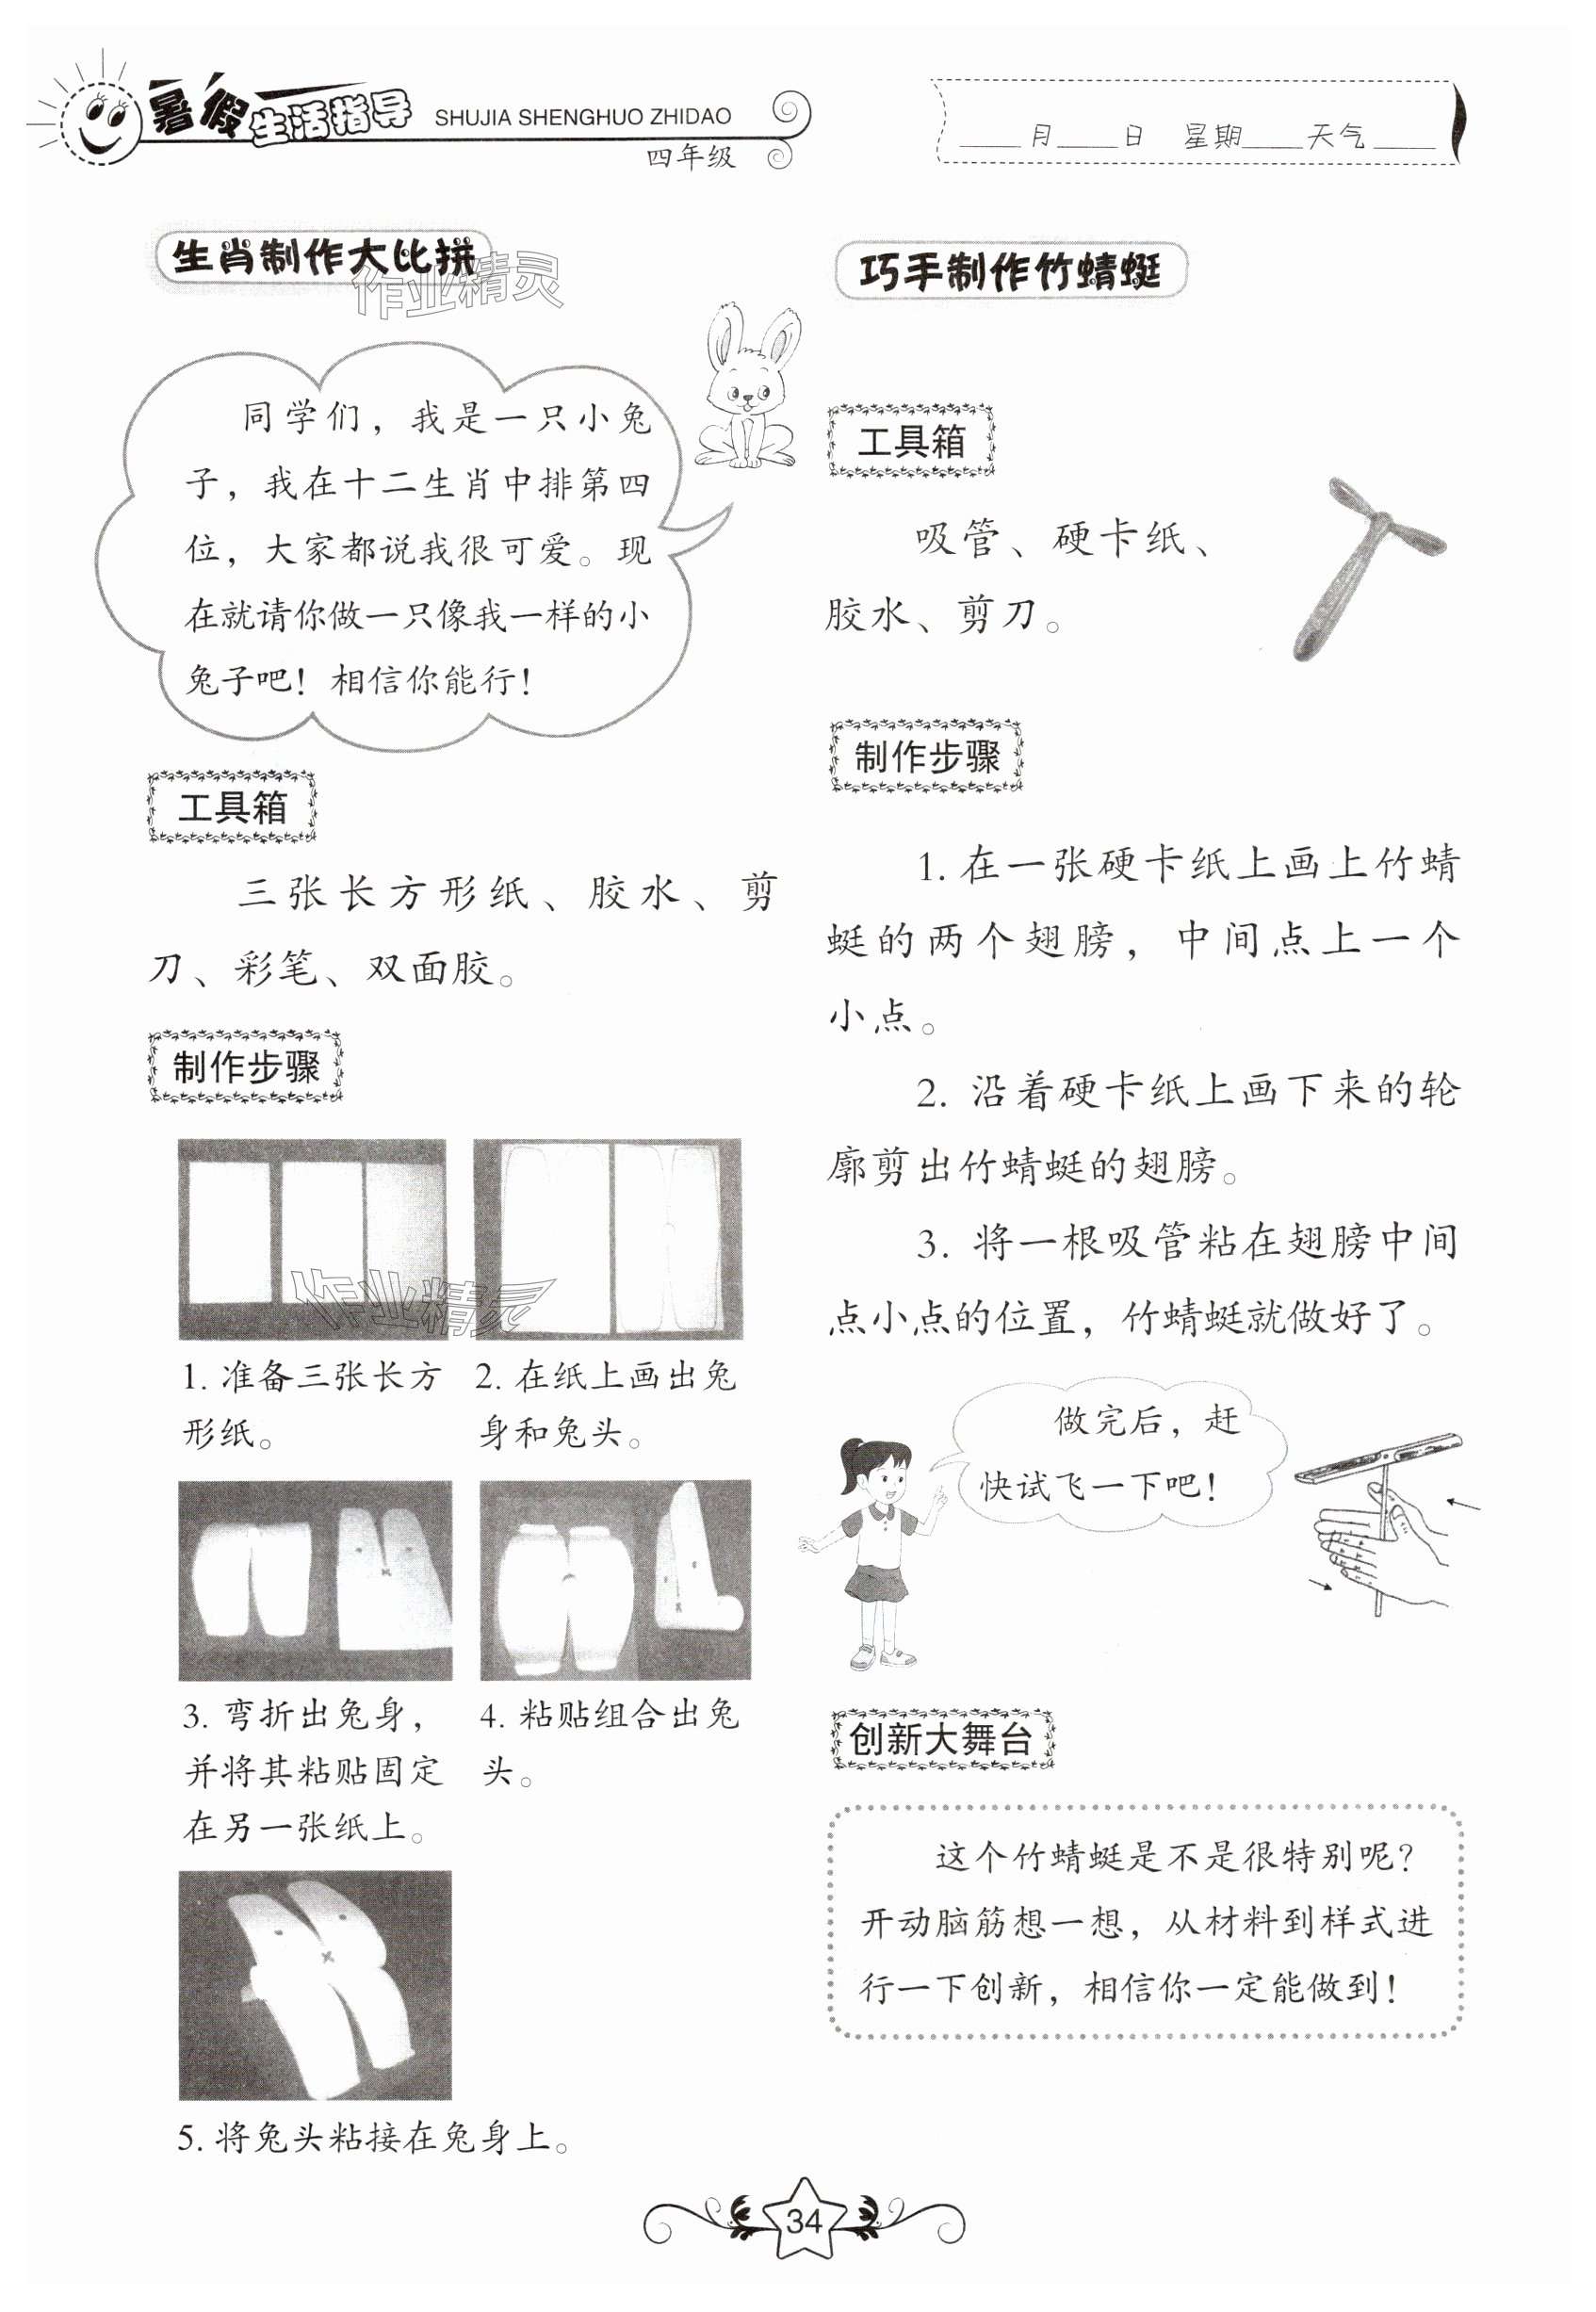 暑假生活指导 SHUJIA SHENGHUO ZHIDAO
四年级
____月____日 星期____天气____
生肖制作大比拼
作业精灵
同学们，我是一只小兔
子，我在十二生肖中排第四
位，大家都说我很可爱。现
在就请你做一只像我一样的小
兔子吧！相信你能行！
工具箱
三张长方形纸、胶水、剪
刀、彩笔、双面胶。
制作步骤
作业精灵
1. 准备三张长方
形纸。
2. 在纸上画出兔
身和兔头。
3. 弯折出兔身，
并将其粘贴固定
在另一张纸上。
4. 粘贴组合出兔
头。
5. 将兔头粘接在兔身上。
巧手制作竹蜻蜓
工具箱
吸管、硬卡纸、
胶水、剪刀。
制作步骤
1. 在一张硬卡纸上画上竹蜻
蜓的两个翅膀，中间点上一个
小点。
2. 沿着硬卡纸上画下来的轮
廓剪出竹蜻蜓的翅膀。
3. 将一根吸管粘在翅膀中间
点小点的位置，竹蜻蜓就做好了。
做完后，赶
快试飞一下吧！
创新大舞台
这个竹蜻蜓是不是很特别呢？
开动脑筋想一想，从材料到样式进
行一下创新，相信你一定能做到！
34